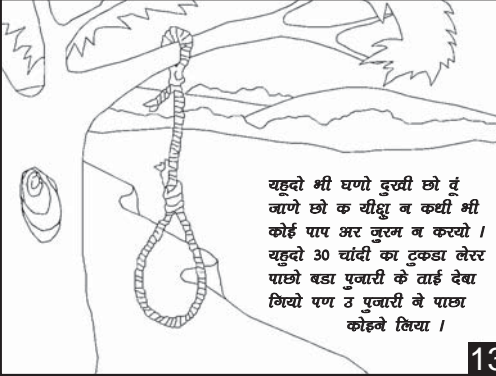 यहूदो भी घणो दुखी छो वूं
जाणे छो क यीक्षु न कधी भी
कोई पाप अर जुरम न करयो ।
यहुदो 30 चांदी का टुकडा लेरर
पाछो बडा पुजारी के ताई देबा
गियो पण उ पुजारी ने पाछा
कोहने लिया ।
13